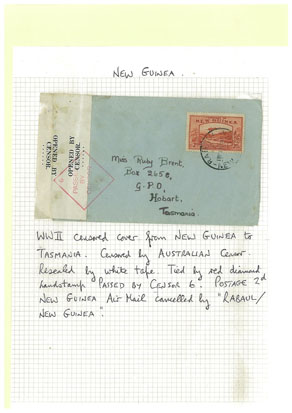 NEW GUINEA.
OPENED BY
CENSOR.
OPENED BY
CENSOR.
NEW GUINEA
Miss Ruby Brent,
Box 265B,
G.P.O,
Hobart,
Tasmania
WWII censored cover from NEW GUINEA to
TASMANIA. Censored by AUSTRALIAN Censor
Resealed by white tape. Tied by red diamond
handstamp PASSED BY CENSOR 6. POSTAGE 2d
NEW GUINEA Air Mail cancelled by "RABAUL/
NEW GUINEA".